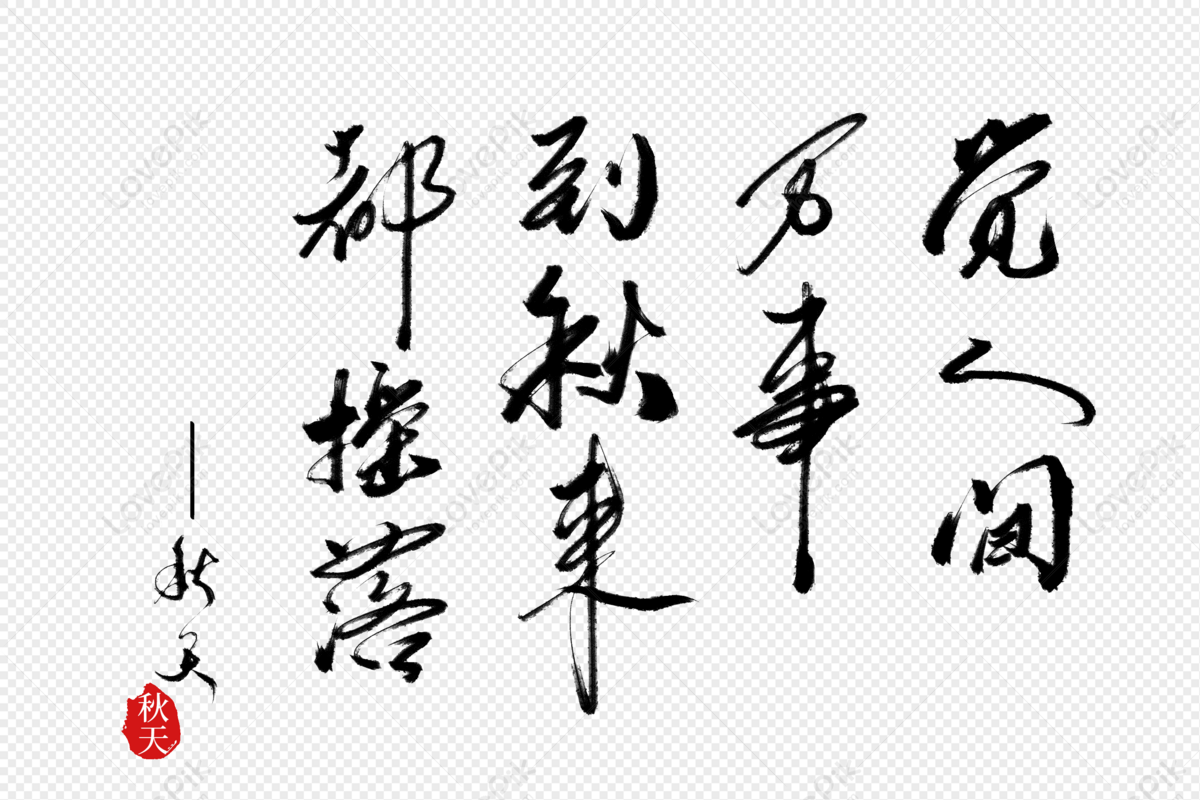 觉人间
万事
到秋来
都摇落
—秋天
秋天